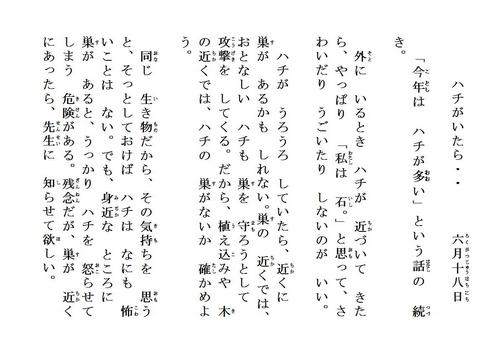 ハチがいたら・・　六月十八日
「今年は　ハチが多い」という話の　続
き。
外に　いるとき　ハチが　近づいて　きた
ら、やっぱり　「私は　石。」と思って、さ
わいだり　うごいたり　しないのが　いい。
ハチが　うろうろ　していたら、近くに
巣が　あるかも　しれない。巣の　近くでは、
おとなしい　ハチも　巣を　守ろうとして
攻撃を　してくる。だから、植え込みや　木
の近くでは、ハチの　巣がないか　確かめよ
う。
同じ　生き物だから、その気持ちを　思う
と、そっとしておけば　ハチは　なにも　怖
いことは　ない。でも、身近な　ところに
巣が　あると、うっかり　ハチを　怒らせて
しまう　危険がある。残念だが、巣が　近く
にあったら、先生に　知らせて欲しい。